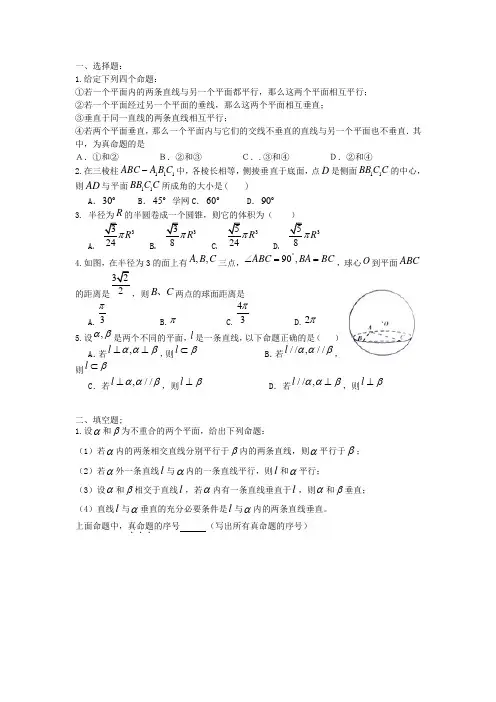 一、选择题：
1.给定下列四个命题：
①若一个平面内的两条直线与另一个平面都平行，那么这两个平面相互平行；
②若一个平面经过另一个平面的垂线，那么这两个平面相互垂直；
③垂直于同一直线的两条直线相互平行；
④若两个平面垂直，那么一个平面内与它们的交线不垂直的直线与另一个平面也不垂直．其
中，为真命题的是
Ａ．①和② Ｂ．②和③ Ｃ．．③和④ Ｄ．②和④
2.在三棱柱 ABC − A₁B₁C₁ 中，各棱长相等，侧掕垂直于底面，点 D 是侧面 BB₁C₁C 的中心，
则 AD 与平面 BB₁C₁C 所成角的大小是( )
A．30° B．45° 学网 C．60° D．90°
3. 半径为 R 的半圆卷成一个圆锥，则它的体积为（ ）
A. √3/24 πR³ B. √3/8 πR³ C. √5/24 πR³ D. √5/8 πR³
4.如图，在半径为 3 的面上有 A, B, C 三点，∠ABC = 90°, BA = BC，球心 O 到平面 ABC
的距离是 3√2/2，则 B、C 两点的球面距离是
A. π/3 B. π C. 4π/3 D. 2π
5.设 α, β 是两个不同的平面，l 是一条直线，以下命题正确的是（ ）
A．若 l ⊥ α, α ⊥ β，则 l ⊂ β B．若 l // α, α // β，
则 l ⊂ β
C．若 l ⊥ α, α // β，则 l ⊥ β D．若 l // α, α ⊥ β，则 l ⊥ β
二、填空题：
1.设 α 和 β 为不重合的两个平面，给出下列命题：
（1）若 α 内的两条相交直线分别平行于 β 内的两条直线，则 α 平行于 β；
（2）若 α 外一条直线 l 与 α 内的一条直线平行，则 l 和 α 平行；
（3）设 α 和 β 相交于直线 l，若 α 内有一条直线垂直于 l，则 α 和 β 垂直；
（4）直线 l 与 α 垂直的充分必要条件是 l 与 α 内的两条直线垂直。
上面命题中，真命题的序号 （写出所有真命题的序号）
A
B
C
O